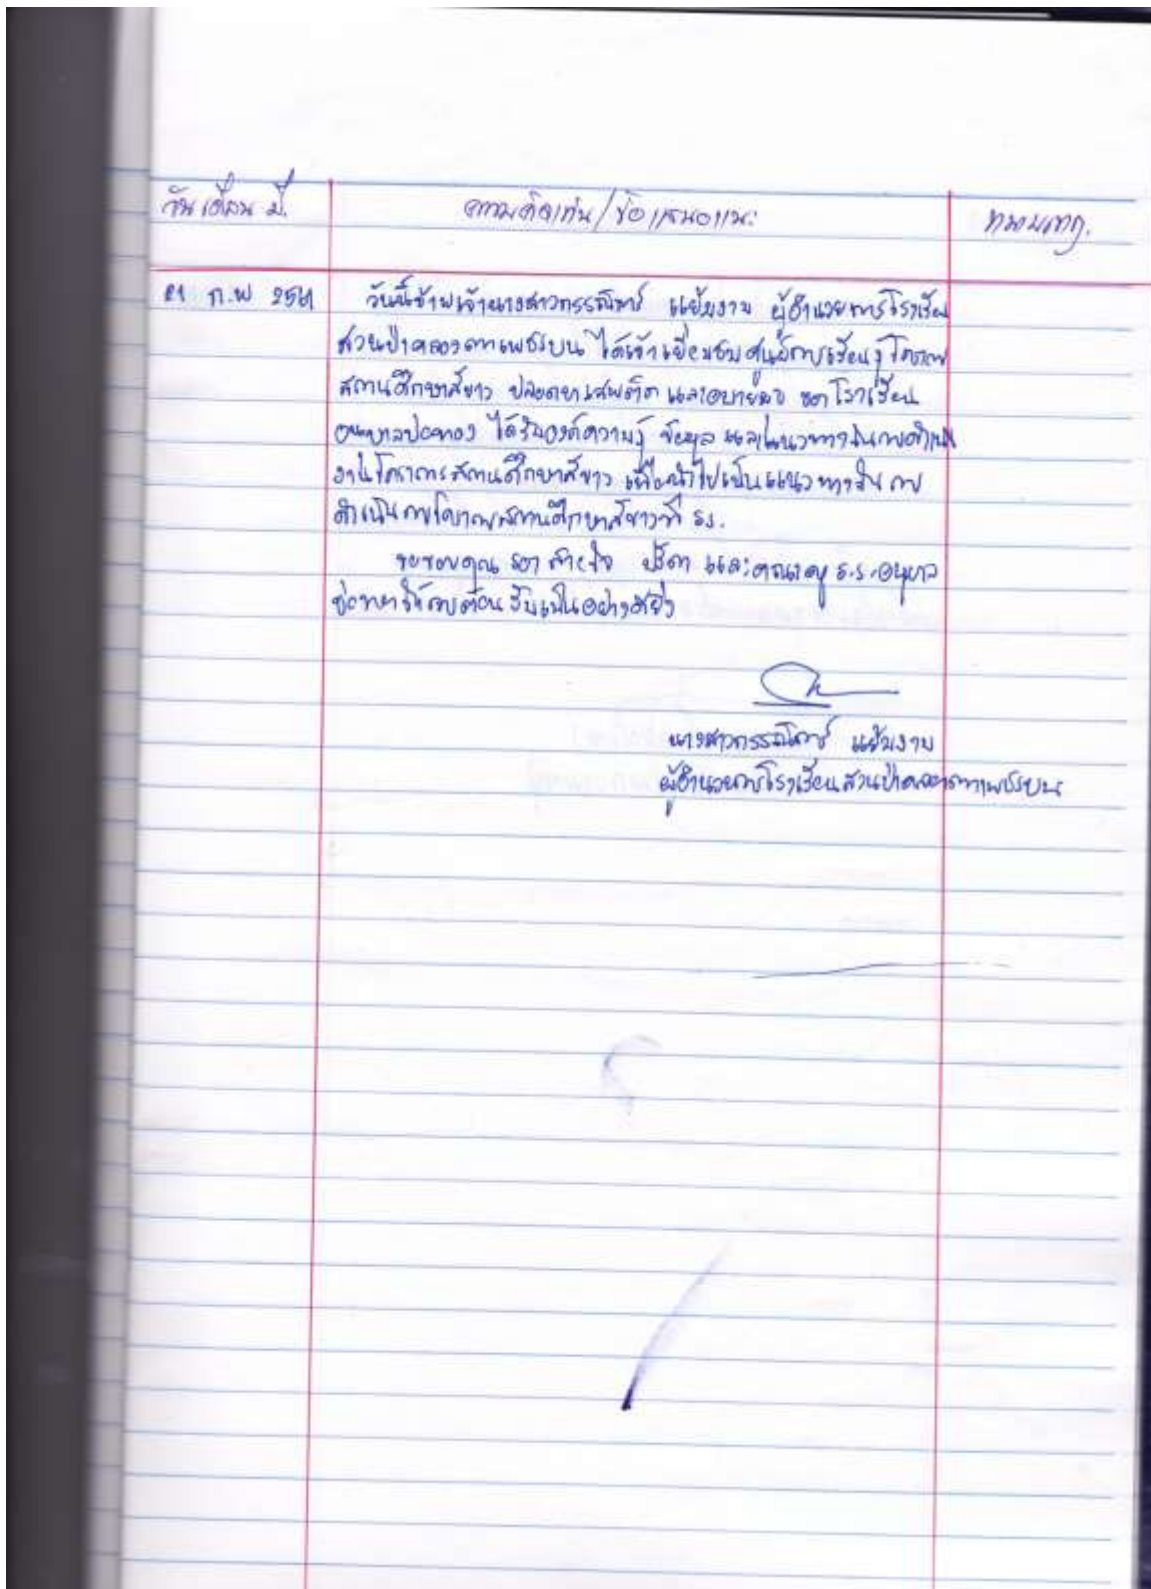 วัน เดือน ปี. ความคิดเห็น/ข้อเสนอแนะ หมายเหตุ.
21 ก.พ 2561 วันนี้ข้าพเจ้านางสาวกรรณิการ์ แย้มงาม ผู้อำนวยการโรงเรียน
สวนป่าคลองตาเพชรบน ได้เข้าเยี่ยมชมศูนย์การเรียนรู้โครงการ
สถานศึกษาสีขาว ปลอดยาเสพติด และอบายมุข ของโรงเรียน
อนุบาลบ่อทอง ได้รับองค์ความรู้ ข้อมูล และแนวทางในการดำเนิน
งานโครงการสถานศึกษาสีขาว เพื่อนำไปเป็นแนวทางใน การ
ดำเนินการโครงการสถานศึกษาสีขาวที่ รร.
ขอขอบคุณ และคณะครู ร.ร.อนุบาล
บ่อทอง ให้การต้อนรับเป็นอย่างดียิ่ง
นางสาวกรรณิการ์ แย้มงาม
ผู้อำนวยการโรงเรียนสวนป่าคลองตาเพชรบน